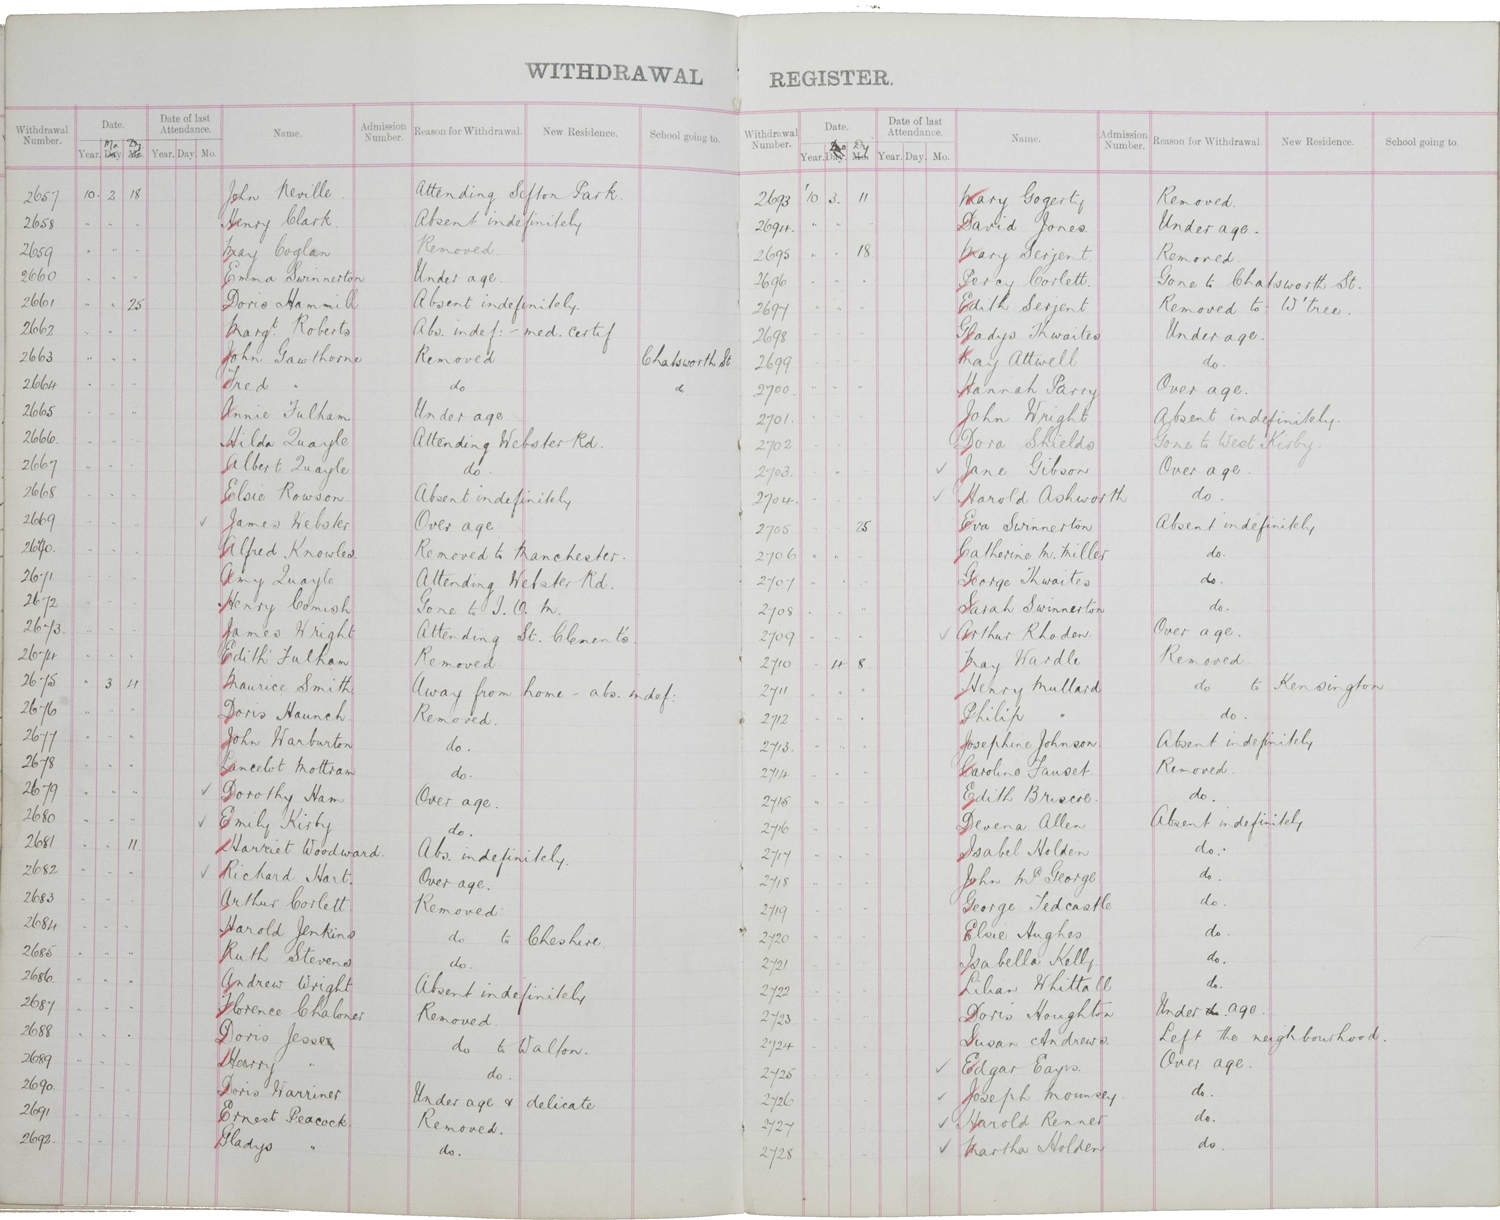 WITHDRAWAL REGISTER.
Withdrawal Number. Date. Year. Day. Mo. Date of last Attendance. Year. Day. Mo. Name. Admission Number. Reason for Withdrawal. New Residence. School going to.
2657 10 2 18 John Neville Attending Sefton Park.
2658 " " " Henry Clark. Absent indefinitely
2659 " " " May Coglan Removed
2660 " " " Emma Swinnerton Under age.
2661 " " 25 Doris Hammill Absent indefinitely.
2662 " " " Margt. Roberts Abs. indef: - med. certif
2663 " " " John Gawthorne Removed Chatsworth St
2664 " " " Fred " do do
2665 " " " Annie Fulham Under age
2666 " " " Hilda Quayle Attending Webster Rd.
2667 " " " Albert Quayle do.
2668 " " " Elsie Rowson Absent indefinitely
2669 " " " ✓ James Webster Over age
2670. " " " Alfred Knowles Removed to Manchester.
2671 " " " Amy Quayle Attending Webster Rd.
2672 " " " Henry Cornish Gone to I. O. M.
2673. " " " James Wright Attending St. Clement's.
2674 " " " Edith Fulham Removed
2675 " 3 4 Maurice Smith Away from home - abs. indef:
2676 " " " Doris Haunch. Removed.
2677 " " " John Warburton do.
2678 " " " Lancelot Mottram do.
2679 " " " ✓ Dorothy Ham Over age.
2680 " " " ✓ Emily Kirby do.
2681 " " 11 Harriet Woodward. Abs. indefinitely.
2682 " " " ✓ Richard Hart. Over age.
2683 " " " Arthur Corlett. Removed
2684 " " " Harold Jenkins do to Cheshire.
2685 " " " Ruth Stevens do.
2686 " " " Andrew Wright Absent indefinitely
2687 " " " Florence Chaloner Removed.
2688 " " " Doris Jesse do to Walton.
2689 " " " Harry " do.
2690 " " " Doris Warriner Under age & delicate
2691 " " " Ernest Peacock. Removed.
2692. " " " Gladys " do.
Withdrawal Number. Date. Year. Day. Mo. Date of last Attendance. Year. Day. Mo. Name. Admission Number. Reason for Withdrawal. New Residence. School going to.
2693 '10 3. 11 Mary Gogerty Removed.
2694. " " " David Jones Under age.
2695 " " 18 Mary Serjent. Removed.
2696 " " " Percy Corlett. Gone to Chatsworth St.
2697 " " " Edith Serjent Removed to: W'tree.
2698 " " " Gladys Thwaites Under age.
2699 " " " May Attwell do.
2700 " " " Hannah Parry Over age.
2701. " " " John Wright Absent indefinitely.
2702 " " " Dora Shields Gone to West Kirby.
2703. " " " ✓ Jane Gibson Over age.
2704. " " " ✓ Harold Ashworth do.
2705 " " 25 Eva Swinnerton Absent indefinitely
2706 " " " Catherine M. Miller do.
2707 " " " George Thwaites do.
2708 " " " Sarah Swinnerton do.
2709 " " " ✓ Arthur Rhoden Over age.
2710 " 4 8 May Wardle Removed
2711 " " " Henry Mullard do to Kensington
2712 " " " Philip " do.
2713. " " " Josephine Johnson. Absent indefinitely
2714 " " " Caroline Fauset Removed.
2715 " " " Edith Briscoe. do.
2716 " " " Devena Allen Absent indefinitely
2717 " " " Isabel Holden do.
2718 " " " John McGeorge do.
2719 " " " George Tedcastle do.
2720 " " " Elsie Hughes do.
2721 " " " Isabella Kelly do.
2722 " " " Lilian Whittall do.
2723 " " " Doris Houghton Under age.
2724 " " " Susan Andrews. Left the neighbourhood.
2725 " " " ✓ Edgar Eayrs. Over age.
2726 " " " ✓ Joseph Mounsey. do.
2727 " " " ✓ Harold Renner do.
2728 " " " ✓ Martha Holden do.